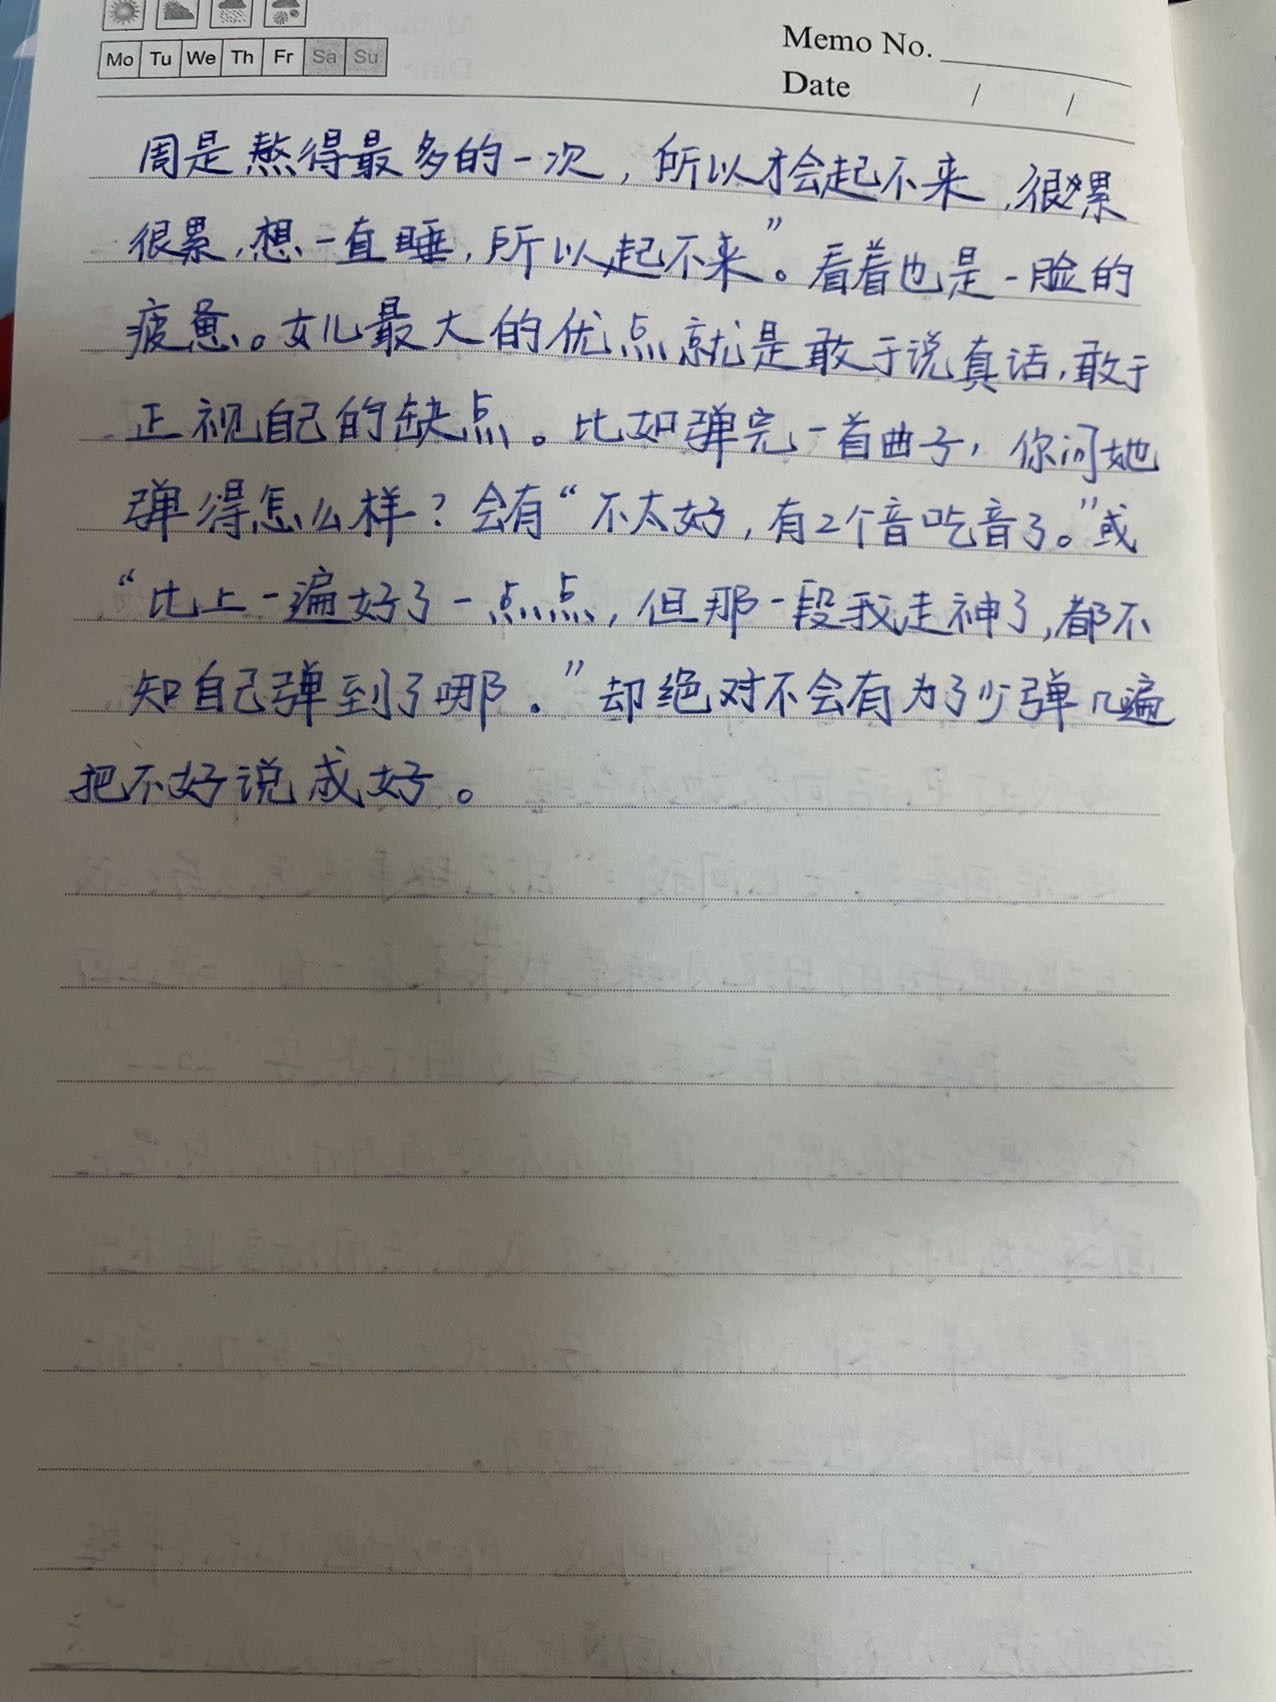 Mo Tu We Th Fr Sa Su
Memo No.
Date / /
周是熬得最多的一次，所以才会起不来，很累
很累，想一直睡，所以起不来”。看着也是一脸的
疲惫。女儿最大的优点就是敢于说真话，敢于
正视自己的缺点。比如弹完一首曲子，你问她
弹得怎么样？会有“不太好，有2个音吃音了。”或
“比上一遍好了一点点，但那一段我走神了，都不
知自己弹到了哪。”却绝对不会有为了少弹几遍
把不好说成好。